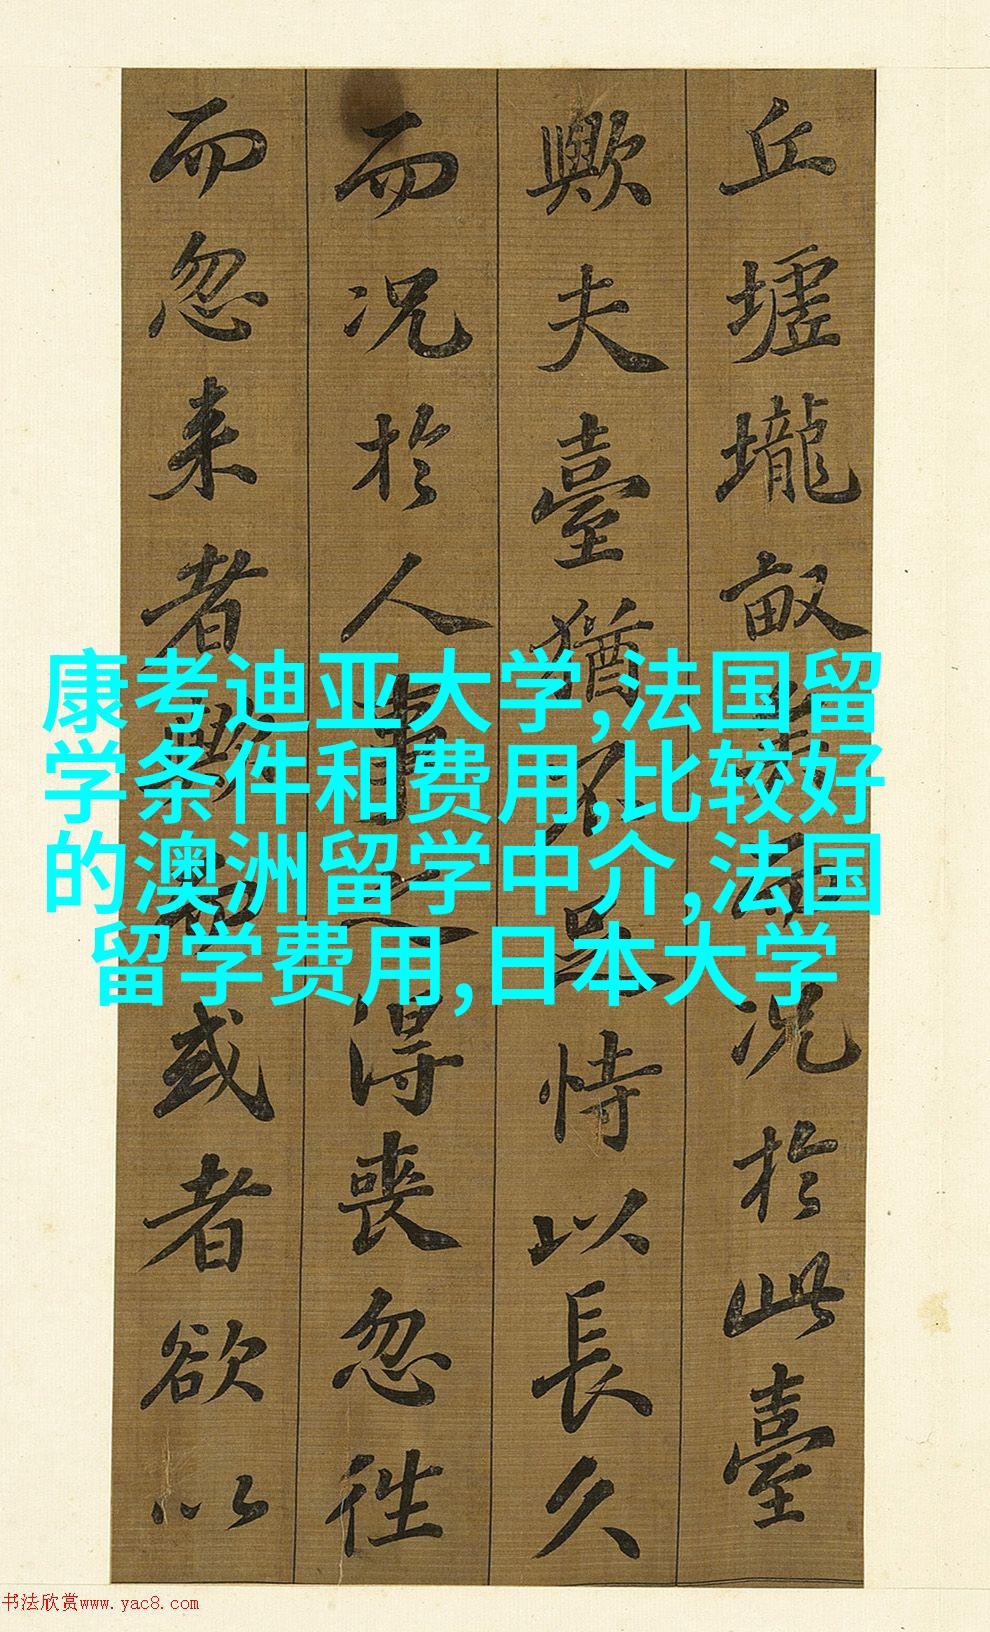 丘墟壠畝矣而况於此臺
歟夫臺猶不足恃以長久
而况於人事之得喪忽往
而忽来者歟而或者欲以
康考迪亚大学,法国留
学条件和费用,比较好
的澳洲留学中介,法国
留学费用,日本大学
书法欣赏www.yac8.com